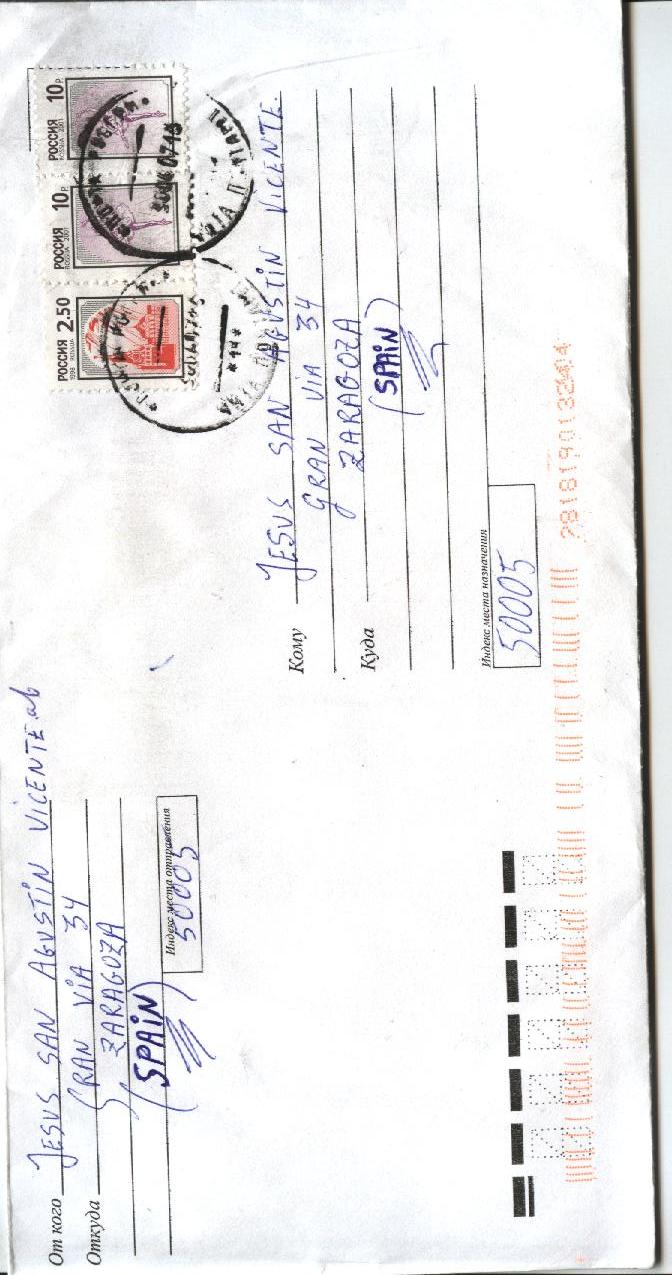 От кого JESUS SAN AGUSTIN VICENTE
Откуда GRAN VIA 34
ZARAGOZA
(SPAIN)
Индекс места отправления
50005
РОССИЯ 2.50
1998 ROSSIJA
РОССИЯ 10 Р.
ROSSIJA 2001
РОССИЯ 10 Р.
ROSSIJA 2001
Кому JESUS SAN AGUSTIN VICENTE
GRAN VIA 34
Куда ZARAGOZA
(SPAIN)
Индекс места назначения
50005